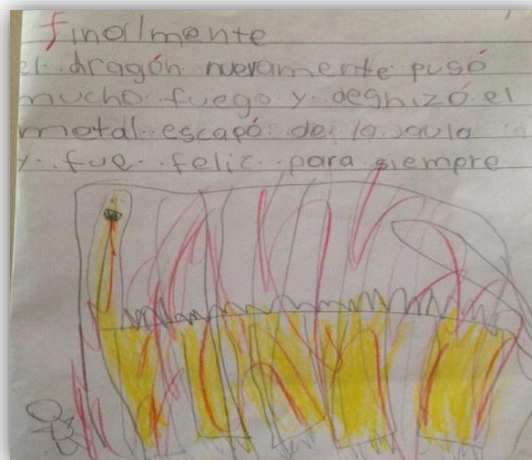 finalmente
el dragón nuevamente pusó
mucho fuego y deshizó el
metal escapó de la jaula
y fue feliz para siempre